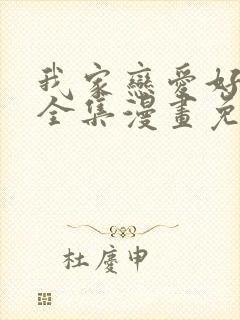 我家戀愛好
全集漫畫免
杜慶申